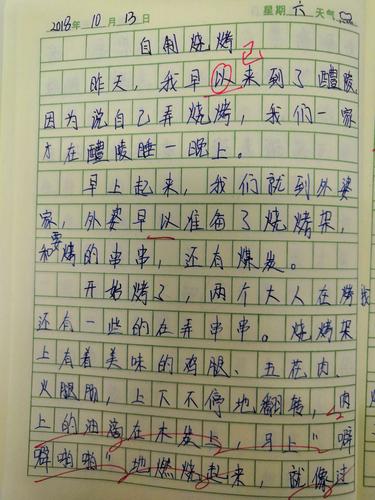 2018年10月13日 星期六天气
自制烧烤
已
昨天，我早以来到了醴陵，
因为说自己弄烧烤，我们一家
才在醴陵睡一晚上。
早上起来，我们就到外婆
家，外婆早以准备了烧烤架，
和要烤的串串，还有煤炭。
开始烤了，两个大人在烤，
还有一些的在弄串串。烧烤架
上有着美味的鸡腿、五花肉、
火腿肠，上下不停地翻转，肉
上的油滴在木炭上，马上“噼
噼啪啪”地燃烧起来，就像过